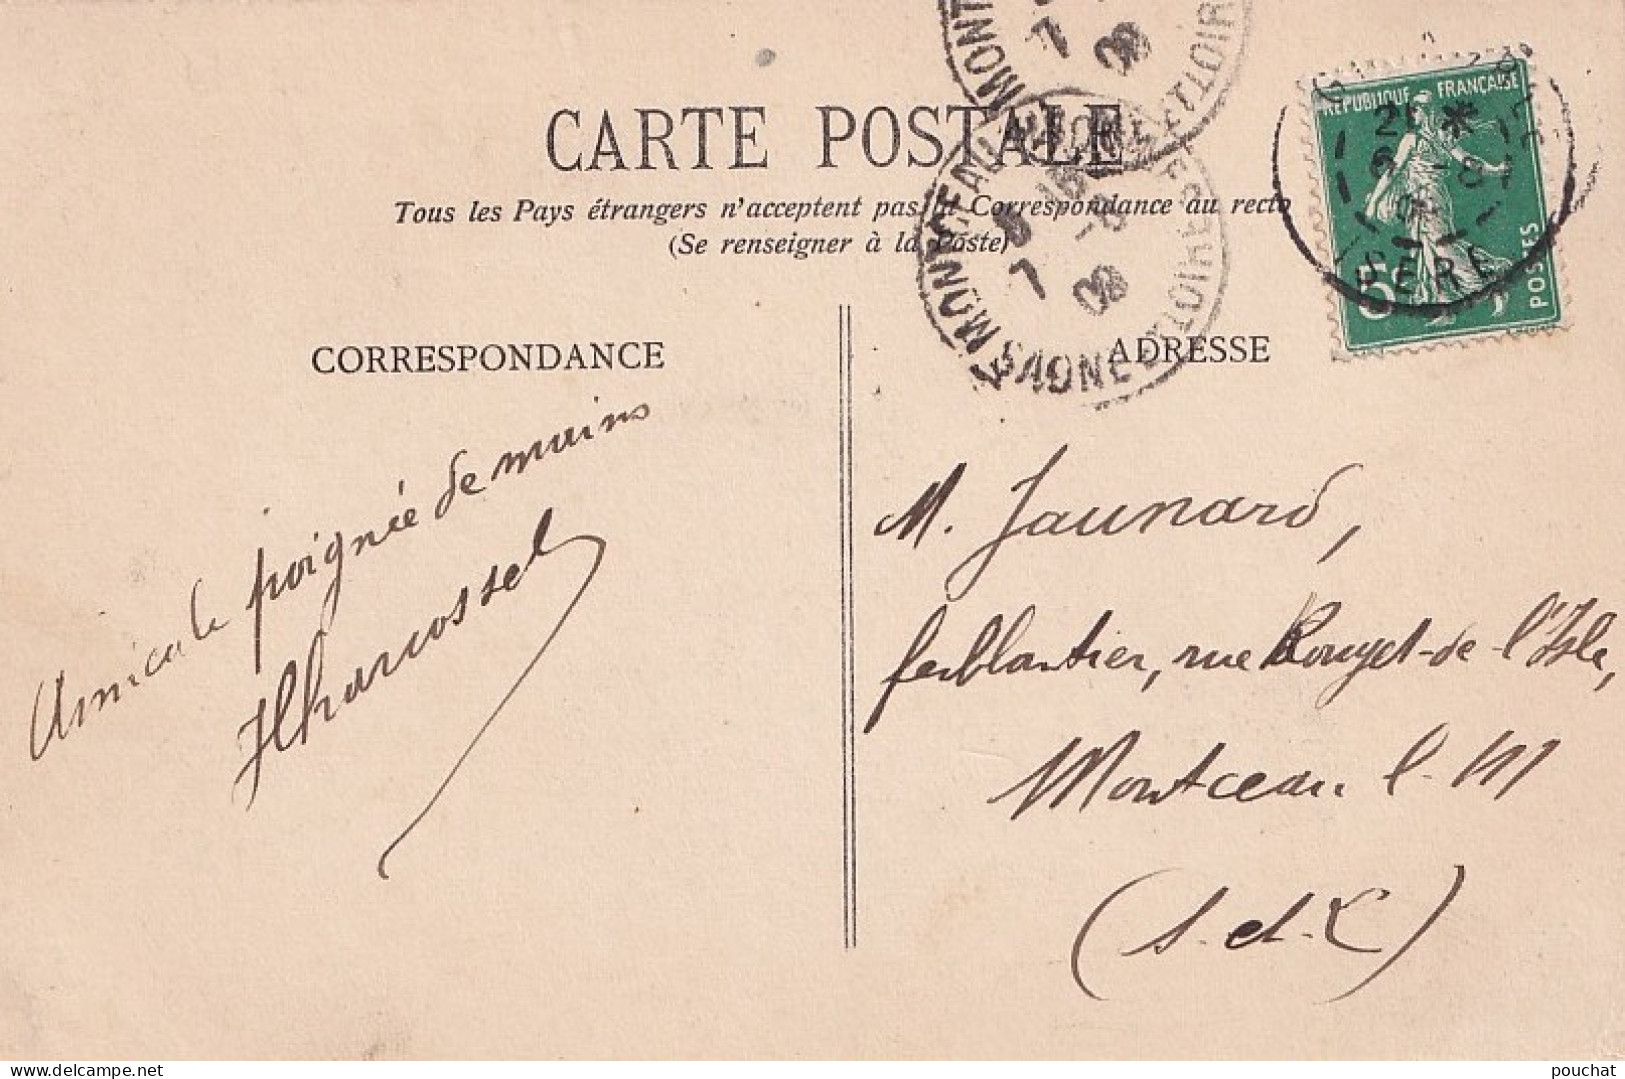 CARTE POSTALE
Tous les Pays étrangers n'acceptent pas la Correspondance au recto
(Se renseigner à la Poste)
RÉPUBLIQUE FRANÇAISE
5c
POSTES
21 *
ISÈRE
MONTCEAU-LES-MINES
SAÔNE-ET-LOIRE
7
08
CORRESPONDANCE
ADRESSE
Amicale poignée de mains
M. Jaunard,
ferblantier, rue Rouget-de-l'Isle,
Montceau l. M
(S.-et-L)
delcampe.net
pouchat